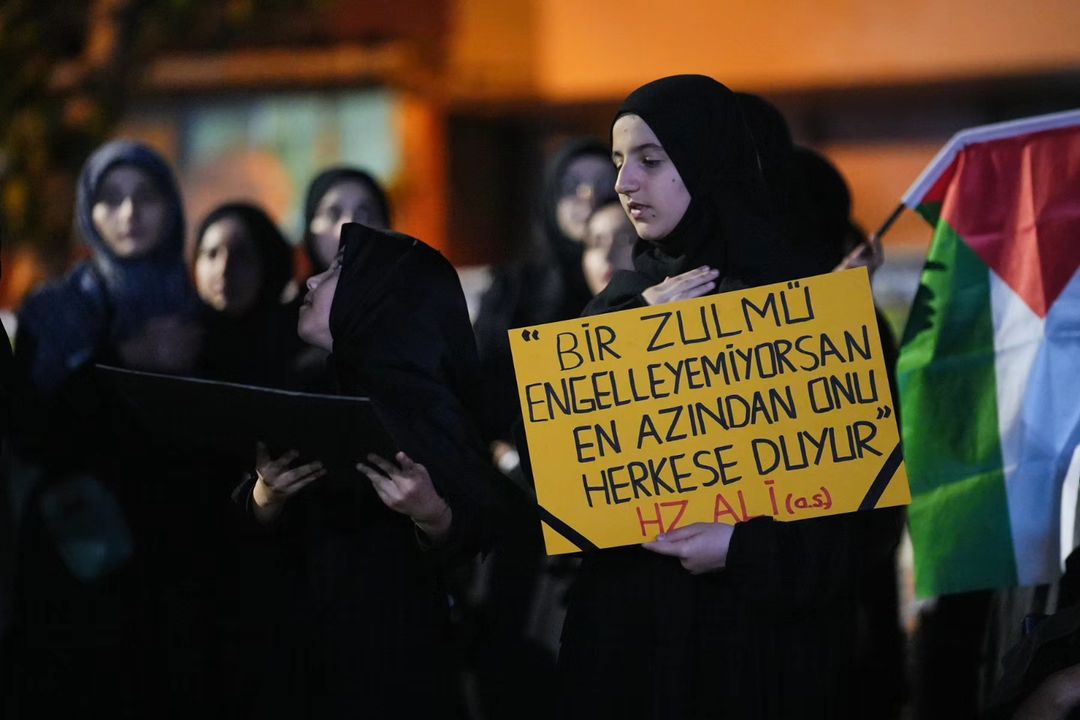 “BİR ZULMÜ
ENGELLEYEMİYORSAN
EN AZINDAN ONU
HERKESE DUYUR”
HZ ALİ (a.s)